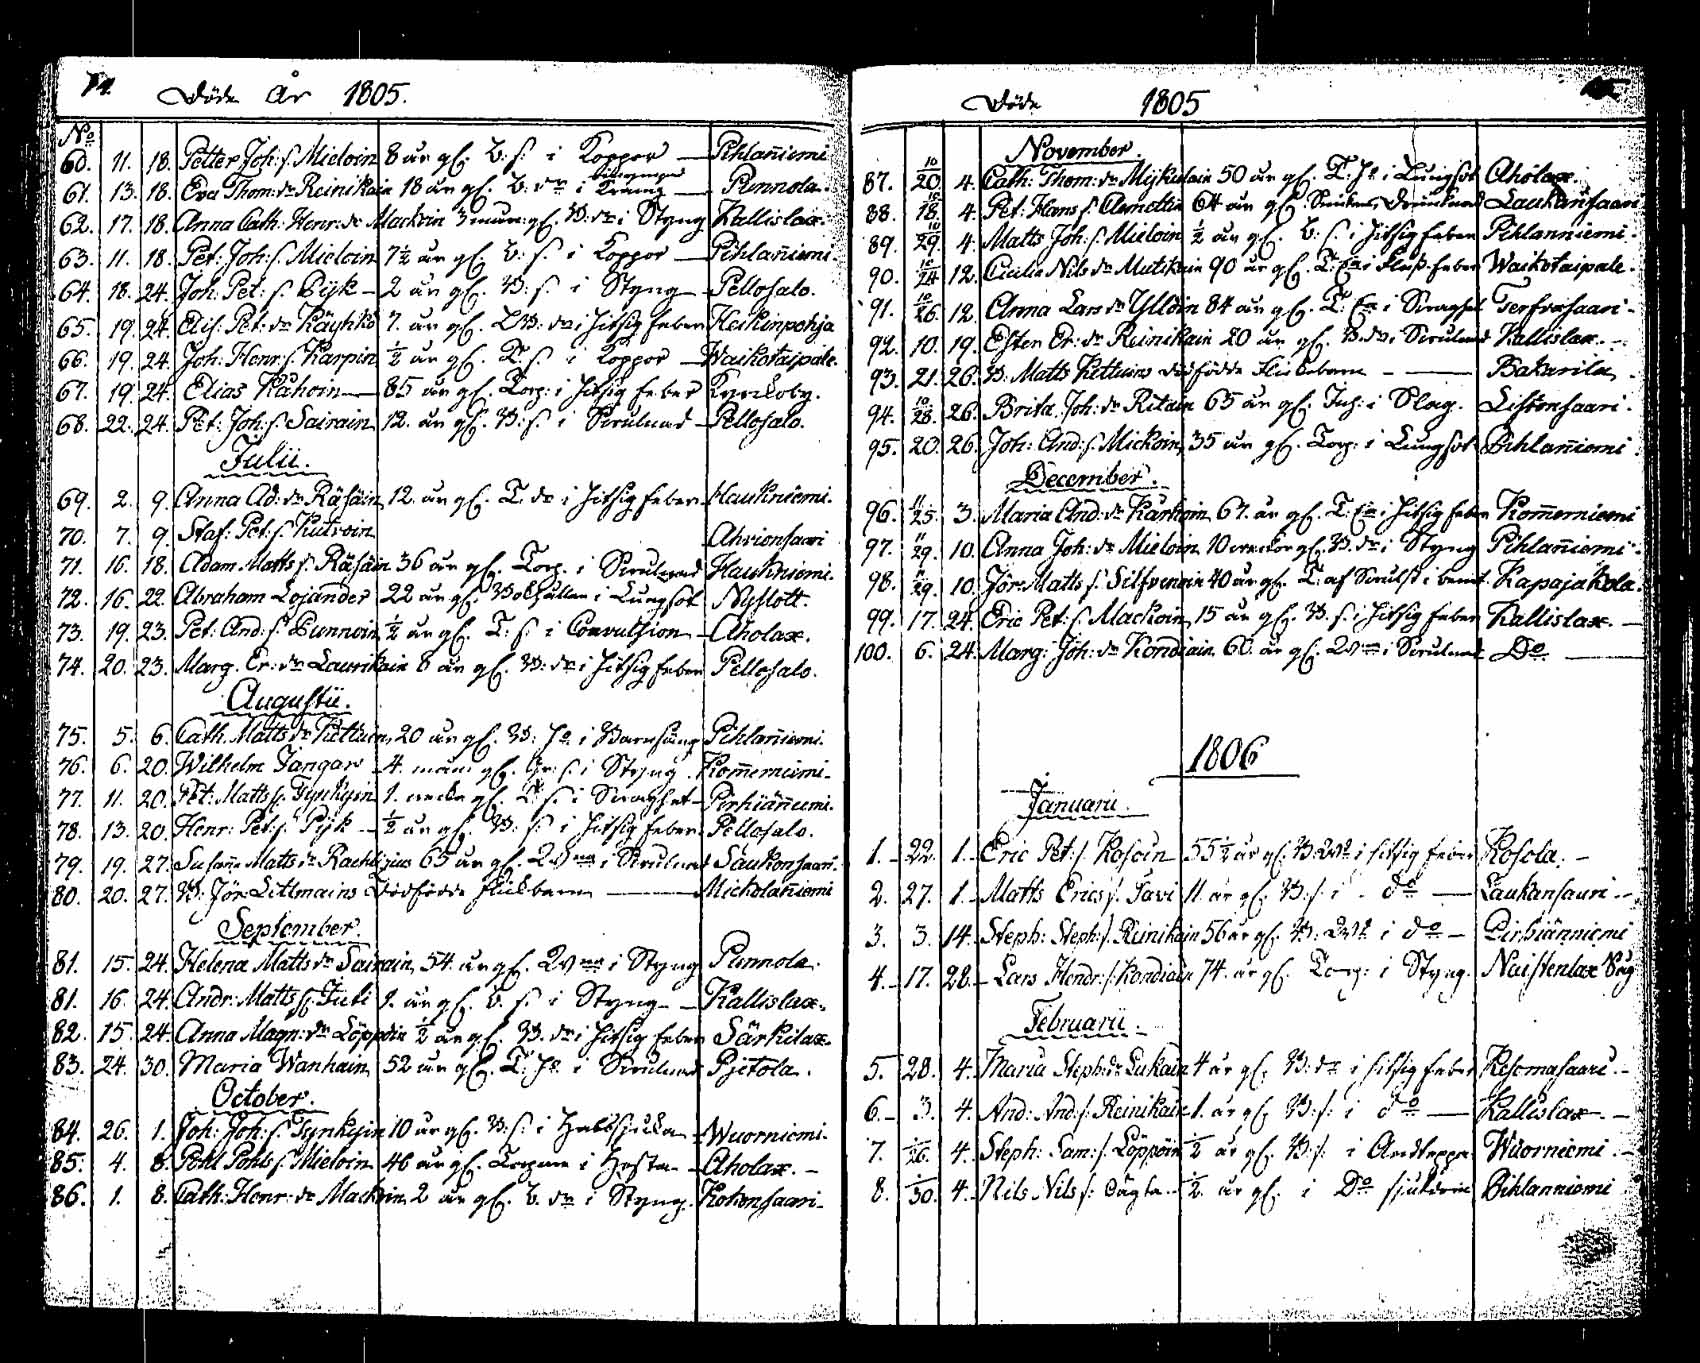 Döde År 1805.
No
60. 11. 18. Petter Joh: s. Mieloin 8 år gl. B. s: i Koppor — Pihlaniemi
61. 13. 18. Eva Thom: dr Reinikain 18 år gl. B: dr i — Punnola.
62. 17. 18. Anna Cath. Henr: dr Mackoin 3 mån: gl. B: dr i Styng Kallislax.
63. 11. 18. Pet: Joh: s. Mieloin 7½ år gl. B: s. i Koppor — Pihlaniemi.
64. 18. 24. Joh: Pet: s. Pijk — 2 år gl. B: s. i Styng — Pellosalo.
65. 19. 24. Elis: Pet: dr Käyhkö 7. år gl. B: dr i hitsig feber Heikinpohja
66. 19. 24. Joh: Henr: s. Karpin ½ år gl. T. s. i Koppor — Waikotaipale.
67. 19. 24. Elias Kähoin — 85 år gl. Torp: i hitsig feber Kyrckoby.
68. 22. 24. Pet: Joh: s. Sairain 12. år gl. B. s. i Svulnad — Pellosalo.
Julii.
69. 2. 9. Anna Ad: dr Räsäin 12. år gl. T. dr i hitsig feber Haukniemi.
70. 7. 9. Staf: Pet: s. Kutvoin Ahvionsaari
71. 16. 18. Adam Matts s. Räsäin 36 år gl. Torp. i Svulnad Haukniemi.
72. 16. 22. Abraham Lojander 22 år gl. Bokhållare i Lungsot Nyslott.
73. 19. 23. Pet: And: s. Punnoin ½ år gl. T: s. i Convultsion — Aholax.
74. 20. 23. Marg. Er: dr Laurikain 8 år gl. B: dr i hitsig feber Pellosalo.
Augustii.
75. 5. 6. Cath. Matts dr Kettuin 20 år gl. B: Ho i Barnsäng Pihlaniemi.
76. 6. 20. Wilhelm Jangar 4. mån: gl. s: i Styng. Kommerniemi.
77. 11. 20. Pet: Matts s. Tynkyin 1. vecka gl. T. s: i Svaghet — Pirhiäniemi.
78. 13. 20. Henr: Pet: s. Pijk — ½ år gl. B. s: i hitsig feber Pellosalo.
79. 19. 27. Susana Matts dr 65 år gl. i Svulnad Saukonsaari.
80. 20. 27. B: Jör. Littmains Dödfödde flickbarn — Mickolaniemi
September.
81. 15. 24. Helena Matts dr Sairain 54. år gl. i Styng Punnola.
81. 16. 24. Andr: Matts s. Juti 1. år gl. B. s: i Styng — Kallislax.
82. 15. 24. Anna Magn: dr Löppöin ½ år gl. B. dr i hitsig feber Särkilax.
83. 24. 30. Maria Wanhain 52 år gl. T: Ho i Svulnad Pjetola.
October.
84. 26. 1. Joh: Joh: s. Tynkyin 10 år gl. B: s: i Halssjuka Wuorniemi.
85. 4. 8. Pohl Pohls s. Mieloin 46 år gl. Torpare i Hosta — Aholax. —
86. 1. 8. Cath: Henr: dr Mackoin 2 år gl. B. dr i Styng. Kokonsaari —
Döde 1805
November.
87. 10/20 4. Cath: Thom: dr 50 år gl. T. Ho i Lungsot Aholax.
88. 10/18 4. Pet: Hans s. Clemettin 64 år gl. Drunknad Laukansaari
89. 10/29 4. Matts Joh: s. Mieloin ½ år gl. B: s. i hitsig feber Pihlanniemi.
90. 10/24 12. Cicilia Nils dr Mutikain 90 år gl. T: Ea i Fluss feber Waikotaipale.
91. 10/26 12. Anna Lars dr Yllöin 84 år gl. T. Ea i Svaghet Terfvasaari —
92. 10. 19. Ester Er: dr Reinikain 20 år gl. B. dr i Svulnad Kallislax. —
93. 21. 26. B: Matts Kettuins dödfödde flickebarn — Bakarila
94. 10/28. 26. Brita Joh: dr Ritain 65 år gl. Inh: i Slag. Listonsaari.
95. 20. 26. Joh: And: s. Mickoin 35 år gl. Torp: i Lungsot Pihlaniemi
December.
96. 11/25. 3. Maria And: dr Karhoin 67. år gl. T: Ea i hitsig feber Kommerniemi
97. 11/29. 10. Anna Joh: dr Mieloin 10 veckor gl. B: dr i Styng Pihlaniemi.
98. 11/29. 10. Jör: Matts s. Silfvennoin 40 år gl. T: af Svulst i benet Kapajäkola.
99. 17. 24. Eric Pet: s. Mackoin 15 år gl. B. s. i hitsig feber Kallislax. —
100. 6. 24. Marg: Joh: dr Kondiain 60. år gl. i Svulnad Do. —
1806
Januarii.
1. 22. 1. Eric Pet: s. Kosoin 55½ år gl. B. i hitsig feber Kosola. —
2. 27. 1. Matts Erics s. Tavi 11. år gl. B: s: i Do — Laukansaari —
3. 3. 14. Steph: Steph: s. Reinikain 56 år gl. B: i Do — Pirhiänniemi
4. 17. 28. Lars Hendr: s. Kondiain 74. år gl. Torp: i Styng. Naistenlax
Februarii.
5. 28. 4. Maria Steph: dr Lukain 4 år gl. B: dr i hitsig feber Kesomasaari. —
6. 3. 4. And: And: s. Reinikain 1. år gl. B: s: i Do — Kallislax. —
7. 1/26. 4. Steph: Sam: s. Löppöin ½ år gl. B: s: i Andteppa Wuorniemi —
8. 1/30. 4. Nils Nils s. ½ år gl. i Do sjukdom Pihlanniemi